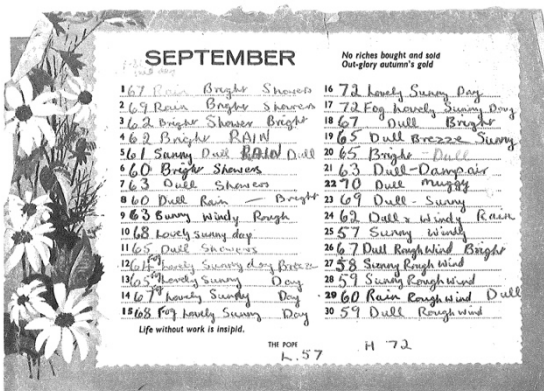 SEPTEMBER
No riches bought and sold
Out-glory autumn's gold
1 67 Rain Bright Showers
2 69 Rain Bright Showers
3 62 Bright Shower Bright
4 62 Bright RAIN
5 61 Sunny Dull RAIN Dull
6 60 Bright Showers
7 63 Dull Showers
8 60 Dull Rain — Bright
9 63 Sunny Windy Rough
10 68 Lovely sunny day
11 65 Dull Showers
12 64 Fog Lovely Sunny day Breeze
13 65 Fog Lovely Sunny Day
14 67 Fog Lovely Sunny Day
15 68 Fog Lovely Sunny Day
Life without work is insipid.
THE POPE
16 72 Lovely Sunny Day
17 72 Fog Lovely Sunny Day
18 67 Dull Bright
19 65 Dull Brezze Sunny
20 65 Bright - Dull
21 63 Dull-Damp air
22 70 Dull muggy
23 69 Dull - Sunny
24 62 Dull & Windy Rain
25 57 Sunny Windy
26 67 Dull Rough Wind Bright
27 58 Sunny Rough Wind
28 59 Sunny Rough Wind
29 60 Rain Rough Wind Dull
30 59 Dull Rough Wind
L.57
H 72